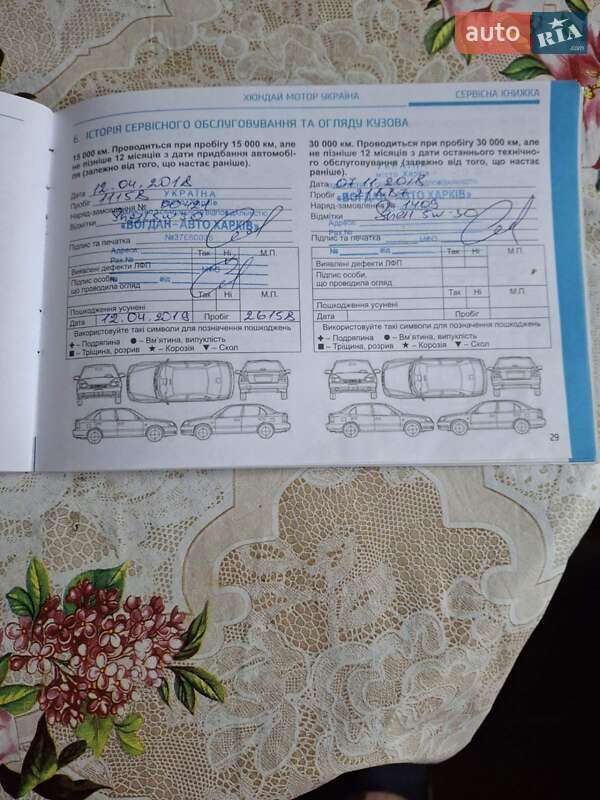 auto RIA .com
ХЮНДАЙ МОТОР УКРАЇНА
СЕРВІСНА КНИЖКА
6. ІСТОРІЯ СЕРВІСНОГО ОБСЛУГОВУВАННЯ ТА ОГЛЯДУ КУЗОВА
15 000 км. Проводиться при пробігу 15 000 км, але
не пізніше 12 місяців з дати придбання автомобі-
ля (залежно від того, що настає
раніше).
Дата 12.04.2018
Пробіг 11158 УКРАЇНА
Наряд-замовлення №
Відмітки
«БОГДАН-АВТО ХАРКІВ»
Підпис та печатка
Адреса:
Рах.№
МФО
Так Ні М.П.
Виявлені дефекти ЛФП
№ від
Підпис особи,
що проводила огляд
Так Ні М.П.
Пошкодження усунені
Дата 12.04.2019 Пробіг 26158
Використовуйте такі символи для позначення пошкоджень
+ – Подряпина ● – Вм'ятина, випуклість
■ – Тріщина, розрив ★ – Корозія ▼ – Скол
30 000 км. Проводиться при пробігу 30 000 км, але
не пізніше 12 місяців з дати останнього технічно-
го обслуговування (залежно від того, що настає
раніше).
Дата 07.11.2018
Пробіг
«БОГДАН-АВТО ХАРКІВ»
Наряд-замовлення №
Відмітки Shell 5w-30
Підпис та печатка
Адреса:
Рах.№
МФО
Так Ні М.П.
Виявлені дефекти ЛФП
№ від
Підпис особи,
що проводила огляд
Так Ні М.П.
Пошкодження усунені
Дата Пробіг
Використовуйте такі символи для позначення пошкоджень
+ – Подряпина ● – Вм'ятина, випуклість
■ – Тріщина, розрив ★ – Корозія ▼ – Скол
29